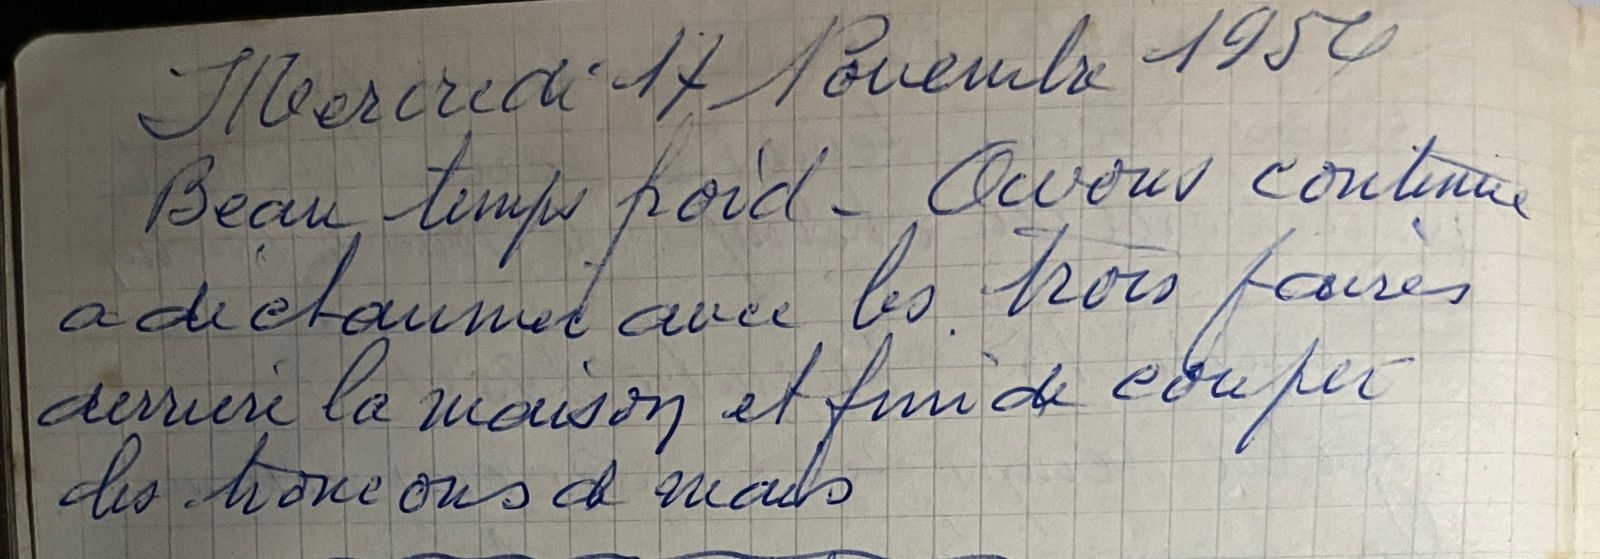 Mercredi 17 Novembre 1954
Beau temps froid - Avons continue
a déchaumer avec les trois paires
derriere la maison et fini de couper
des troncons de mais